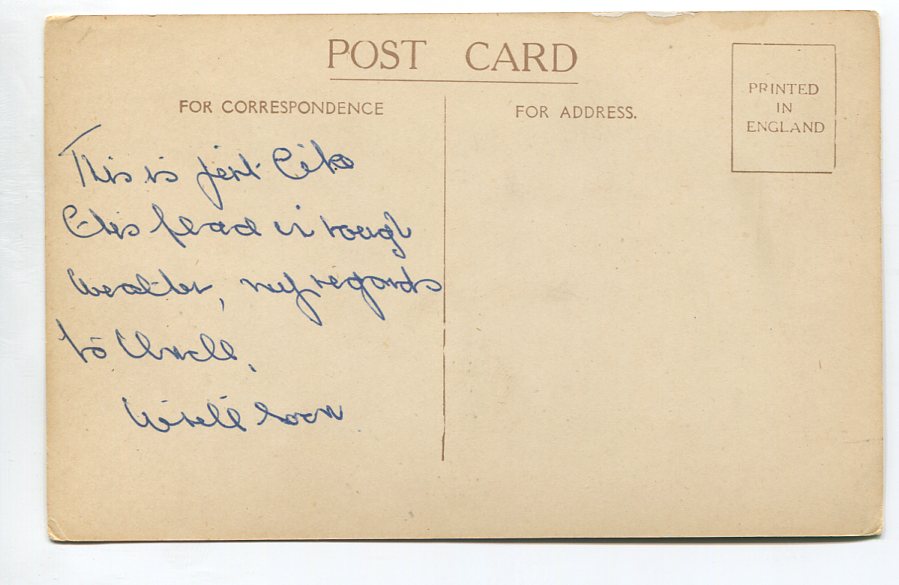 POST CARD
FOR CORRESPONDENCE
FOR ADDRESS.
PRINTED
IN
ENGLAND
This is just like
this in rough
weather, my regards
to Uncle,
soon